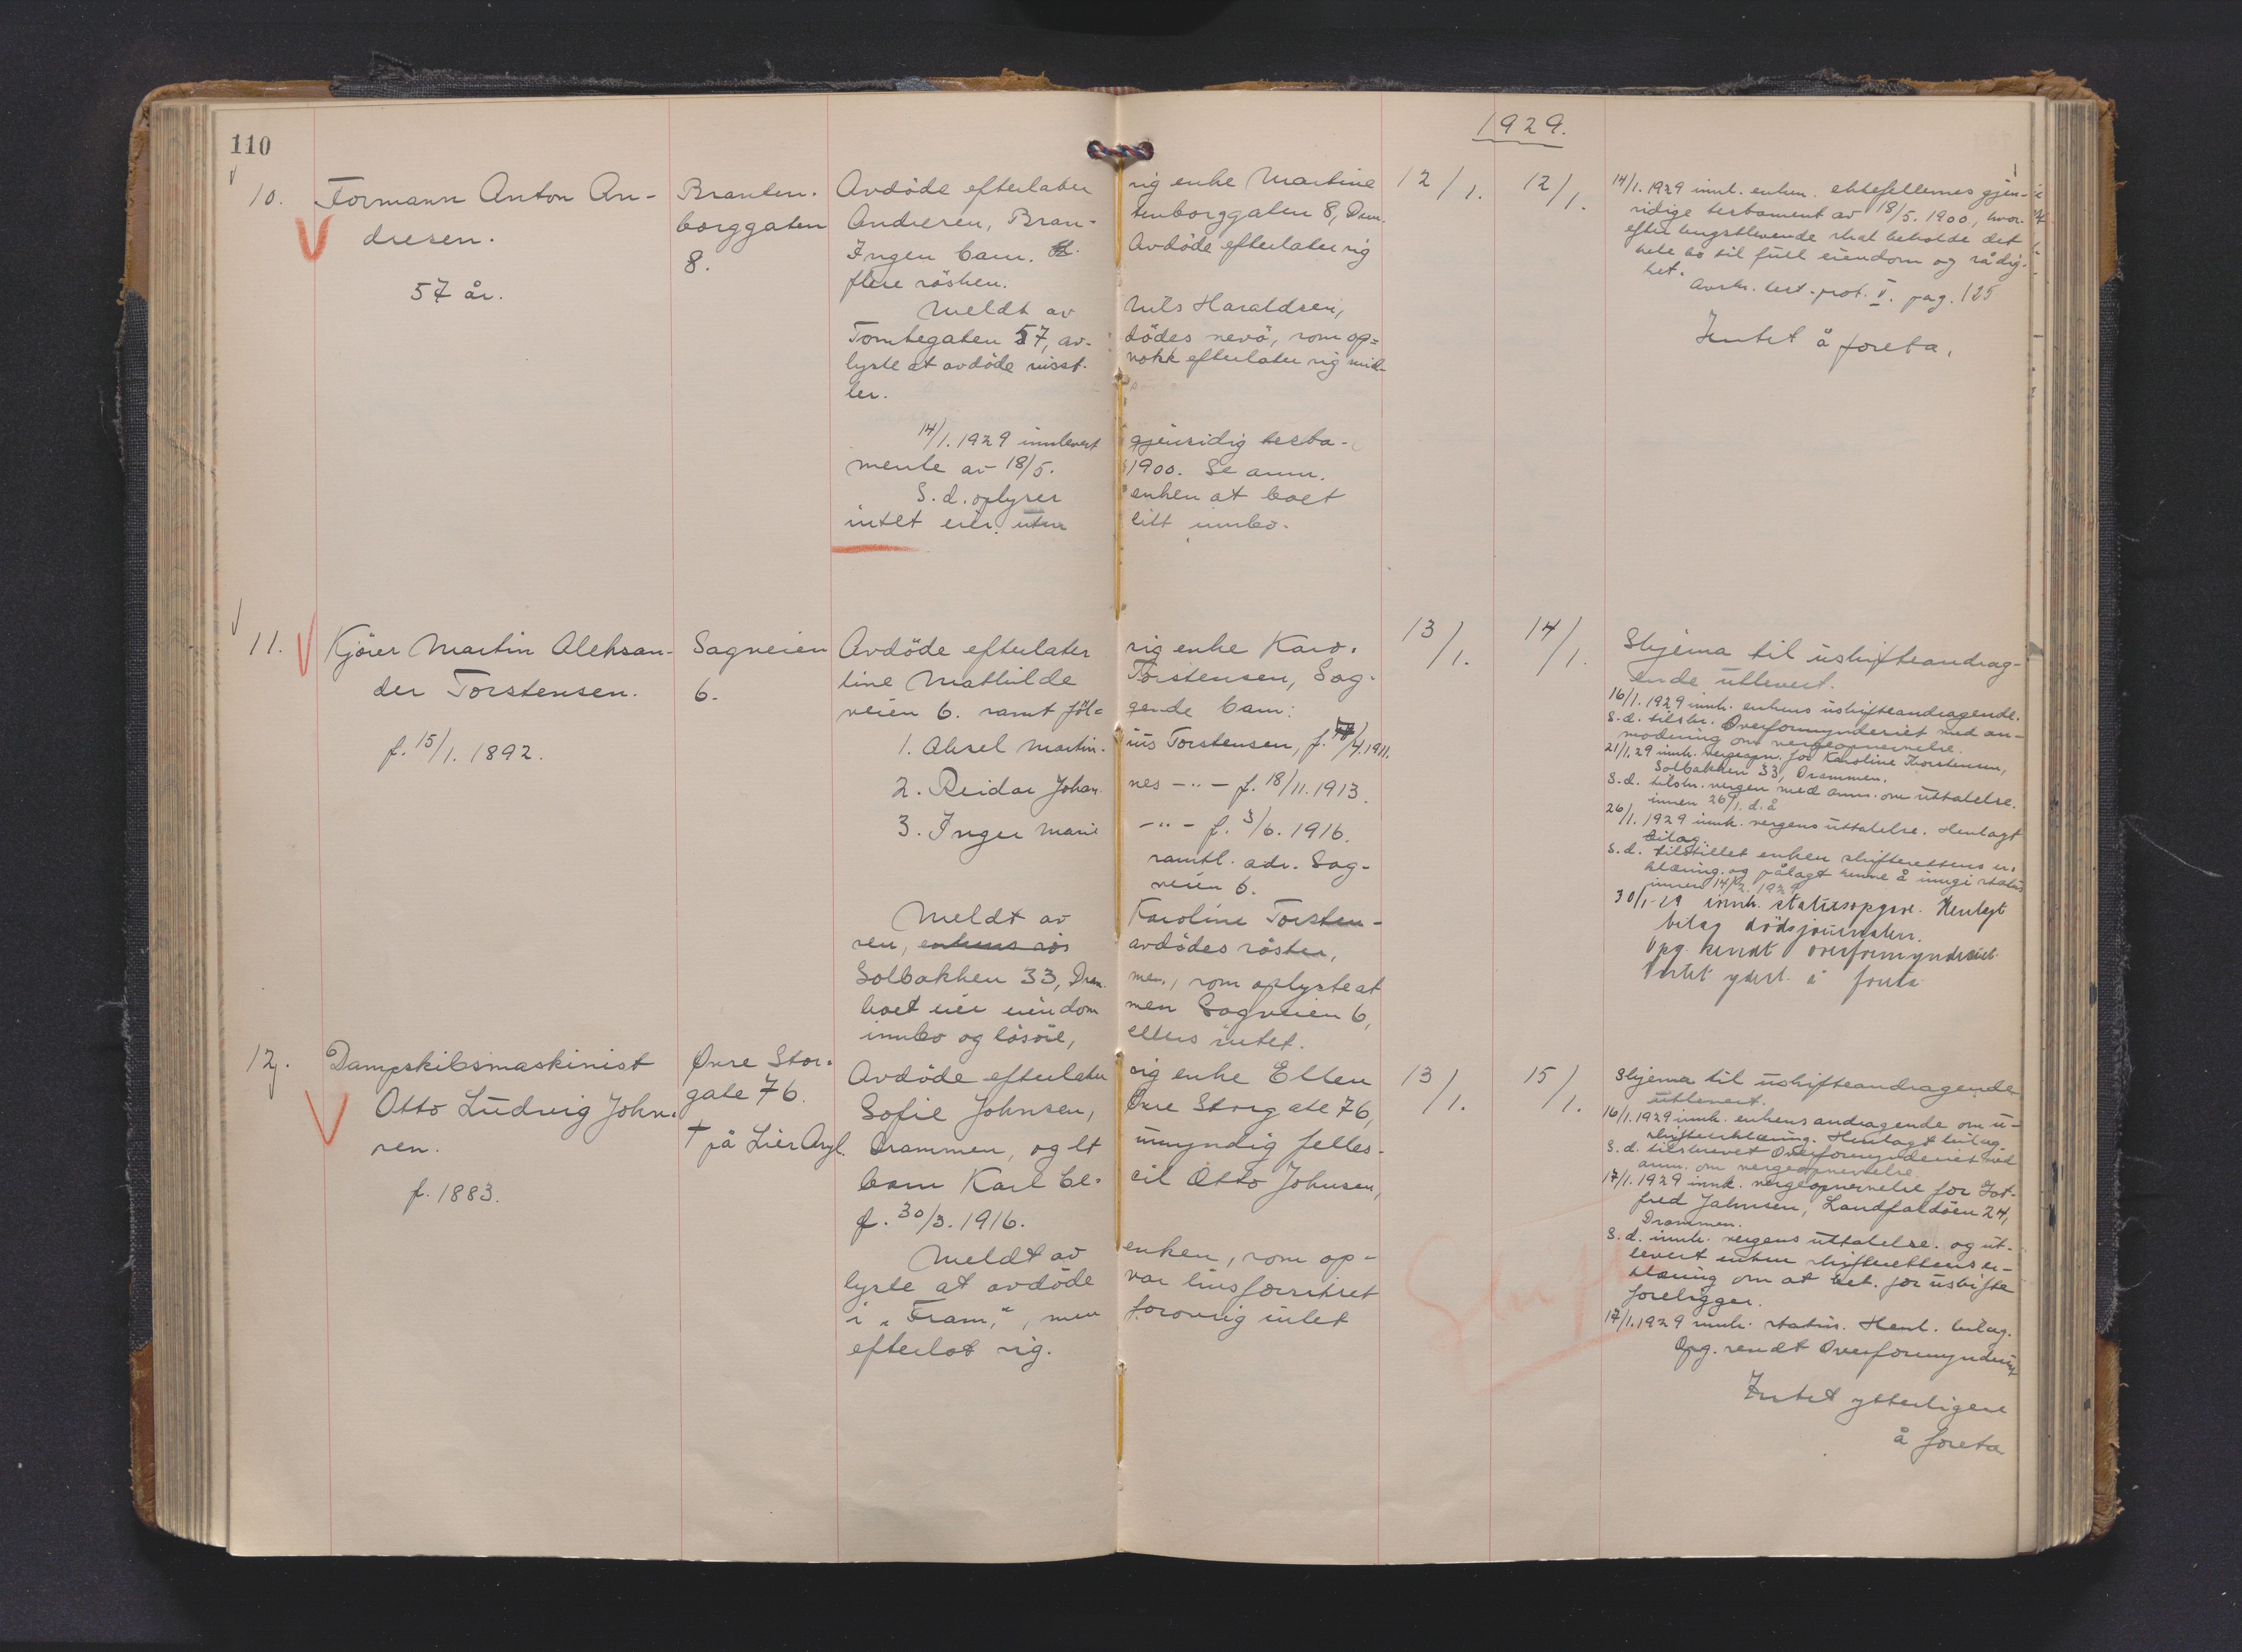 110
1929.
10. Formann Anton An-
dresen.
57 år.
Branten-
borggaten
8.
Avdöde efterlater sig enke Martine
Andresen, Bran- tenborggaten 8, Drm.
Ingen barn. Avdöde efterlater sig
flere sösken.
Meldt av Nils Haraldsen,
Tomtegaten 57, av- dödes nevö, som op=
lyste at avdöde visst- nokk efterlater sig mid-
ler.
14/1. 1929 innlevert gjensidig testa-
mente av 18/5. 1900. Se anm.
S.d. oplyser enken at boet
intet eier uten litt innbo.
12/1.
12/1.
14/1. 1929 innl. enken ektefellernes gjen-
sidige testament av 18/5. 1900, hvor-
efter lengstlevende skal beholde det
hele bo til full eiendom og rådig-
het.
Avskr. test.-prot. V. pag. 125
Intet å foreta.
11. Kjörer Martin Aleksan-
der Torstensen.
f. 15/1. 1892.
Sagveien
6.
Avdöde efterlater sig enke Karo-
line Mathilde Torstensen, Sag-
veien 6. samt föl= gende barn:
1. Aksel Martin- ius Torstensen, f. /4. 1911.
2. Reidar Johan- nes -"- f. 18/11. 1913.
3. Inger Marie -"- f. 3/6. 1916.
samtl. adr. Sag-
veien 6.
Meldt av Karoline Torsten-
sen, enkens sös avdödes söster,
Solbakken 33, Dram- men, som oplyste at
boet eier eiendom men Sagveien 6,
innbo og lösöre, ellers intet.
13/1.
14/1.
Skjema til uskifteandrag-
ende utlevert.
16/1. 1929 innk. enkens uskifteandragende.
S.d. tilskr. Overformynderiet med an-
modning om vergeopnevnelse.
21/1. 29 innk. vergeopn. for Karoline Thorstensen,
Solbakken 33, Drammen.
S.d. tilskr. vergen med anm. om uttalelse.
innen 26/1. d.å
26/1. 1929 innk. vergens uttalelse. Henlagt
bilag.
S.d. tilstillet enken skifterettens er-
klæring og pålagt henne å inngi status
innen 14/2. 1929
30/1-29 innk. statusopgave. Henlagt
bilag dödsjournalen.
Opg. sendt overformynderiet.
Intet yderl. å foreta
12. Dampskibsmaskinist
Otto Ludvig John-
sen.
f. 1883.
Övre Stor-
gate 76.
† på Lier Asyl.
Avdöde efterlater sig enke Ellen
Sofie Johnsen, Övre Storgate 76,
Drammen, og et umyndig felles-
barn Karl Be- cil Otto Johnsen,
f. 30/3. 1916.
Meldt av enken, som op-
lyste at avdöde var livsforsikret
i "Fram", men forövrig intet
efterlot sig.
13/1.
15/1.
Skjema til uskifteandragende
utlevert.
16/1. 1929 innk. enkens andragende om u-
skifteerklæring. Henlagt bilag.
S.d. tilskrevet Overformynderiet med
anm. om vergeopnevnelse.
17/1. 1929 innk. vergeopnevnelse for Got-
fred Johnsen, Landfaldöen 24,
Drammen.
S.d. innk. vergens uttalelse og ut-
levert enken skifterettens er-
klæring om at bet. for uskifte
foreligger.
17/1. 1929 innk. status. Henl. bilag.
Opg. sendt Overformynderiet
Intet ytterligere
å foreta